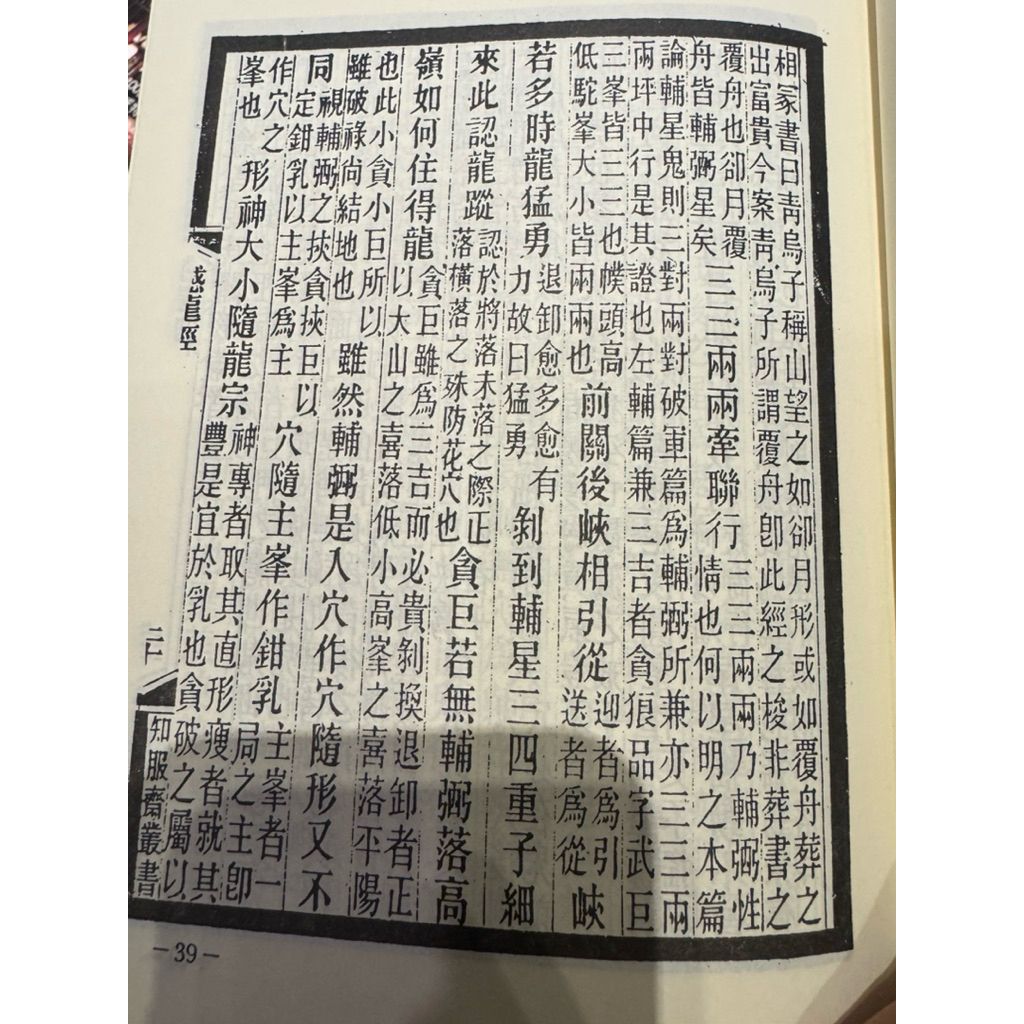 相冢書曰青烏子稱山望之如卻月形或如覆舟葬之
出富貴今案青烏子所謂覆舟卽此經之梭非葬書之
覆舟也卻月覆舟皆輔弼星矣三三兩兩牽聯行三三兩兩乃輔弼性情也何以明之本篇
論輔星鬼則三對兩對破軍篇爲輔弼所兼亦三三兩
兩坪中行是其證也左輔篇兼三吉者貪狼品字武巨
三峯皆三三也幞頭高低駝峯大小皆兩兩也前關後峽相引從迎者爲引送者爲從峽
若多時龍猛勇退卸愈多愈有力故曰猛勇剝到輔星三四重子細
來此認龍蹤認於將落未落之際正落橫落之殊防花穴也貪巨若無輔弼落高
嶺如何住得龍貪巨雖爲三吉而必貴剝換退卸者正以大山之喜落低小高峯之喜落平陽
也此小貪小巨所以雖破祿尚結地也雖然輔弼是入穴作穴隨形又不
同視輔弼之挾貪挾巨以定鉗乳以主峯爲主穴隨主峯作鉗乳主峯者一局之主卽
作穴之峯也形神大小隨龍宗神專者取其直形瘦者就其豐是宜於乳也貪破之屬以
撼龍經
二十
知服齋叢書
—39—